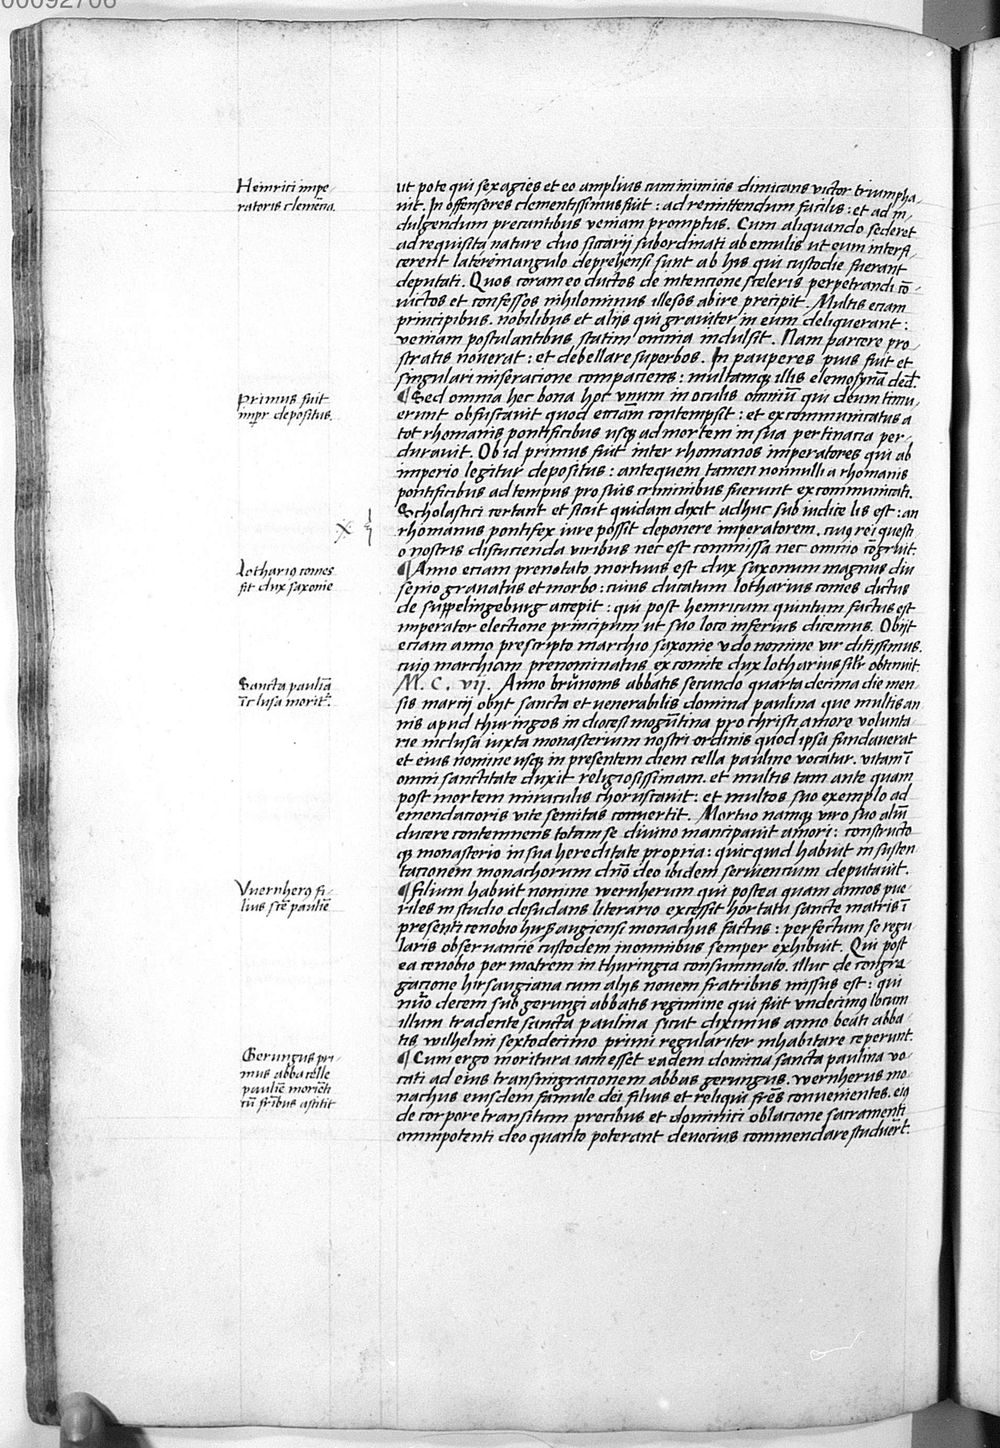 00092706
Heinrici impe-
ratoris clemēcia.
ut pote qui sexagies et eo amplius cum inimicis dimicans victor triumpha-
uit. In offensores clementissimus fuit : ad remittendum facilis : et ad in-
dulgendum precantibus veniam promptus. Cum aliquando sederet
ad requisita nature duo sicarij subordinati ab emulis ut eum interfi-
cerent latere in angulo deprehensi sunt ab his qui custodie fuerant
deputati. Quos coram eo ductos de intencione sceleris perpetrandi cō-
uictos et confessos nihilominus illesos abire precipit. Multis eciam
principibus. nobilibus et alijs qui grauiter in eum deliquerant :
veniam postulantibus statim omnia indulsit. Nam parcere pro-
stratis nouerat : et debellare superbos. In pauperes pius fuit et
singulari miseracione compaciens : multamqȝ illis elemosynā ded̄.
Primus fuit
impr̄ depositus.
¶ Sed omnia hec bona hoc vnum in oculis omniū qui deum timu-
erunt obfuscauit quod ecciam contempsit : et excommunicatus a
tot rhomanis pontificibus usqȝ ad mortem in sua pertinacia per-
durauit. Ob id primus fuit inter rhomanos imperatores qui ab
imperio legitur depositus : antequem tamen nonnulli a rhomanis
pontificibus ad tempus pro suis criminibus fuerunt excommunicati.
Scholastici certant et sicut quidam dixit adhuc sub iudice lis est : an
rhomanus pontifex iure possit deponere imperatorem. cuiꝯ rei questi
o nostris discucienda viribus nec est commissa nec omnio cōgruit.
Lothariꝯ comes
fit dux saxonie
¶ Anno eciam prenotato mortuus est dux saxonum magnus diu
senio grauatus et morbo : cuius ducatum lotharius comes dictus
de suppelingeburg accepit : qui post heinricum quintum factus est
imperator electione principum ut suo loco inferius dicemus. Obijt
eciam anno prescripto marchio saxonie vdo nomine vir ditissimus.
cuiꝯ marchiam prenominatus ex comite dux lotharius sil'r obtinuit
Sancta paulīa
īclusa morit'.
M. C. vij. Anno brunonis abbatis secundo quarta decima die men-
sis marcij obijt sancta et venerabilis domina paulina que multis an
nis apud thuringos in diocesi mogūtina pro christi amore volunta-
rie inclusa iuxta monasterium nostri ordinis quod ipsa fundauerat
et eius nomine usqȝ in presentem diem cella pauline vocatur. vitam ī
omni sanctitate duxit religiosissimam. et multis tam ante quam
post mortem miraculis choruscauit : et multos suo exemplo ad
emendacioris vite semitas conuertit. Mortuo namqȝ viro suo aliū
ducere contemnens totam se diuino mancipauit amori : constructo
qȝ monasterio in sua hereditate propria : quicquid habuit in susten
tacionem monachorum dño deo ibidem seruiencium deputauit.
Vuernherꝯ fi-
lius scē paulīe
¶ Filium habuit nomine wernherum qui postea quam annos pue
riles in studio desudans literario excessit hortatu sancte matris ī
presenti cenobio hirsaugiensi monachus factus : perfectum se regu
laris obseruancie custodem in omnibus semper exhibuit. Qui post
ea cenobio per matrem in thuringia consummato. illuc de congre-
gacione hirsaugiana cum alijs nouem fratribus missus est : qui
nūo decem sub gerungi abbatis regimine qui fuit vndecimꝯ locum
illum tradente sancta paulina sicut diximus anno beati abba-
tis wilhelmi sextodecimo primi regulariter inhabitare ceperunt.
Gerungus pri-
mus abba celle
paulīe moriēti
cū fr̄ibus astitit
¶ Cum ergo moritura iam esset eadem domina sancta paulina vo-
cati ad eius transmigracionem abbas gerungus. wernherus mo-
nachus eiusdem famule dei filius et reliqui fr̄es conuenientes. eiꝯ
de corpore transitum precibus et dominici oblacione sacramenti
omnipotenti deo quanto poterant deuocius commendare studuēt.